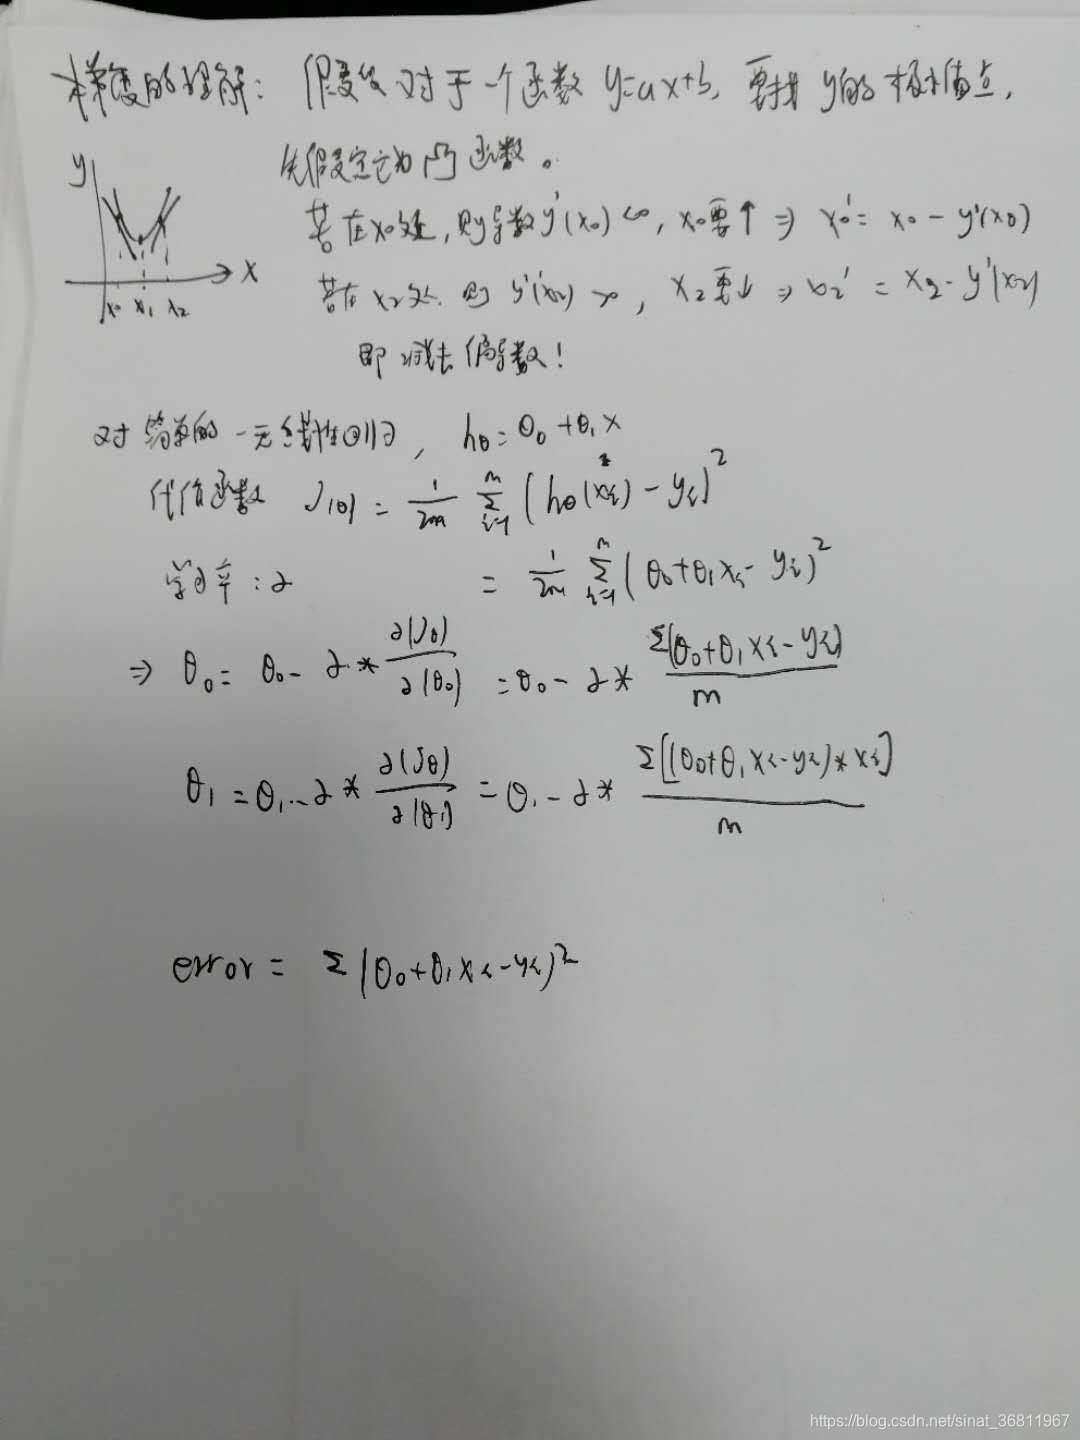 梯度的理解: 假设 对于一个函数 y=ax+b, 要找 y的极值点,
先假定它为凸函数。
y
若在x0处, 则导数y'(x0)<0, x0要↑ ⇒ x0'= x0 - y'(x0)
x
若在x2处. 则 y'(x2)>0, x2要↓ ⇒ x2' = x2 - y'(x2)
x0 x1 x2
即 减去偏导数!
对简单的一元线性回归, hθ = θ0 + θ1 x
代价函数 J(θ) = 1/2m Σ(i=1→m) (hθ(xi) - yi)^2
学习率: α = 1/2m Σ(i=1→m) (θ0+θ1xi - yi)^2
⇒ θ0 = θ0 - α * ∂(Jθ)/∂(θ0) = θ0 - α * Σ(θ0+θ1xi - yi)/m
θ1 = θ1 - α * ∂(Jθ)/∂(θ1) = θ1 - α * Σ[(θ0+θ1xi - yi)*xi]/m
error = Σ(θ0+θ1xi - yi)^2
https://blog.csdn.net/sinat_36811967